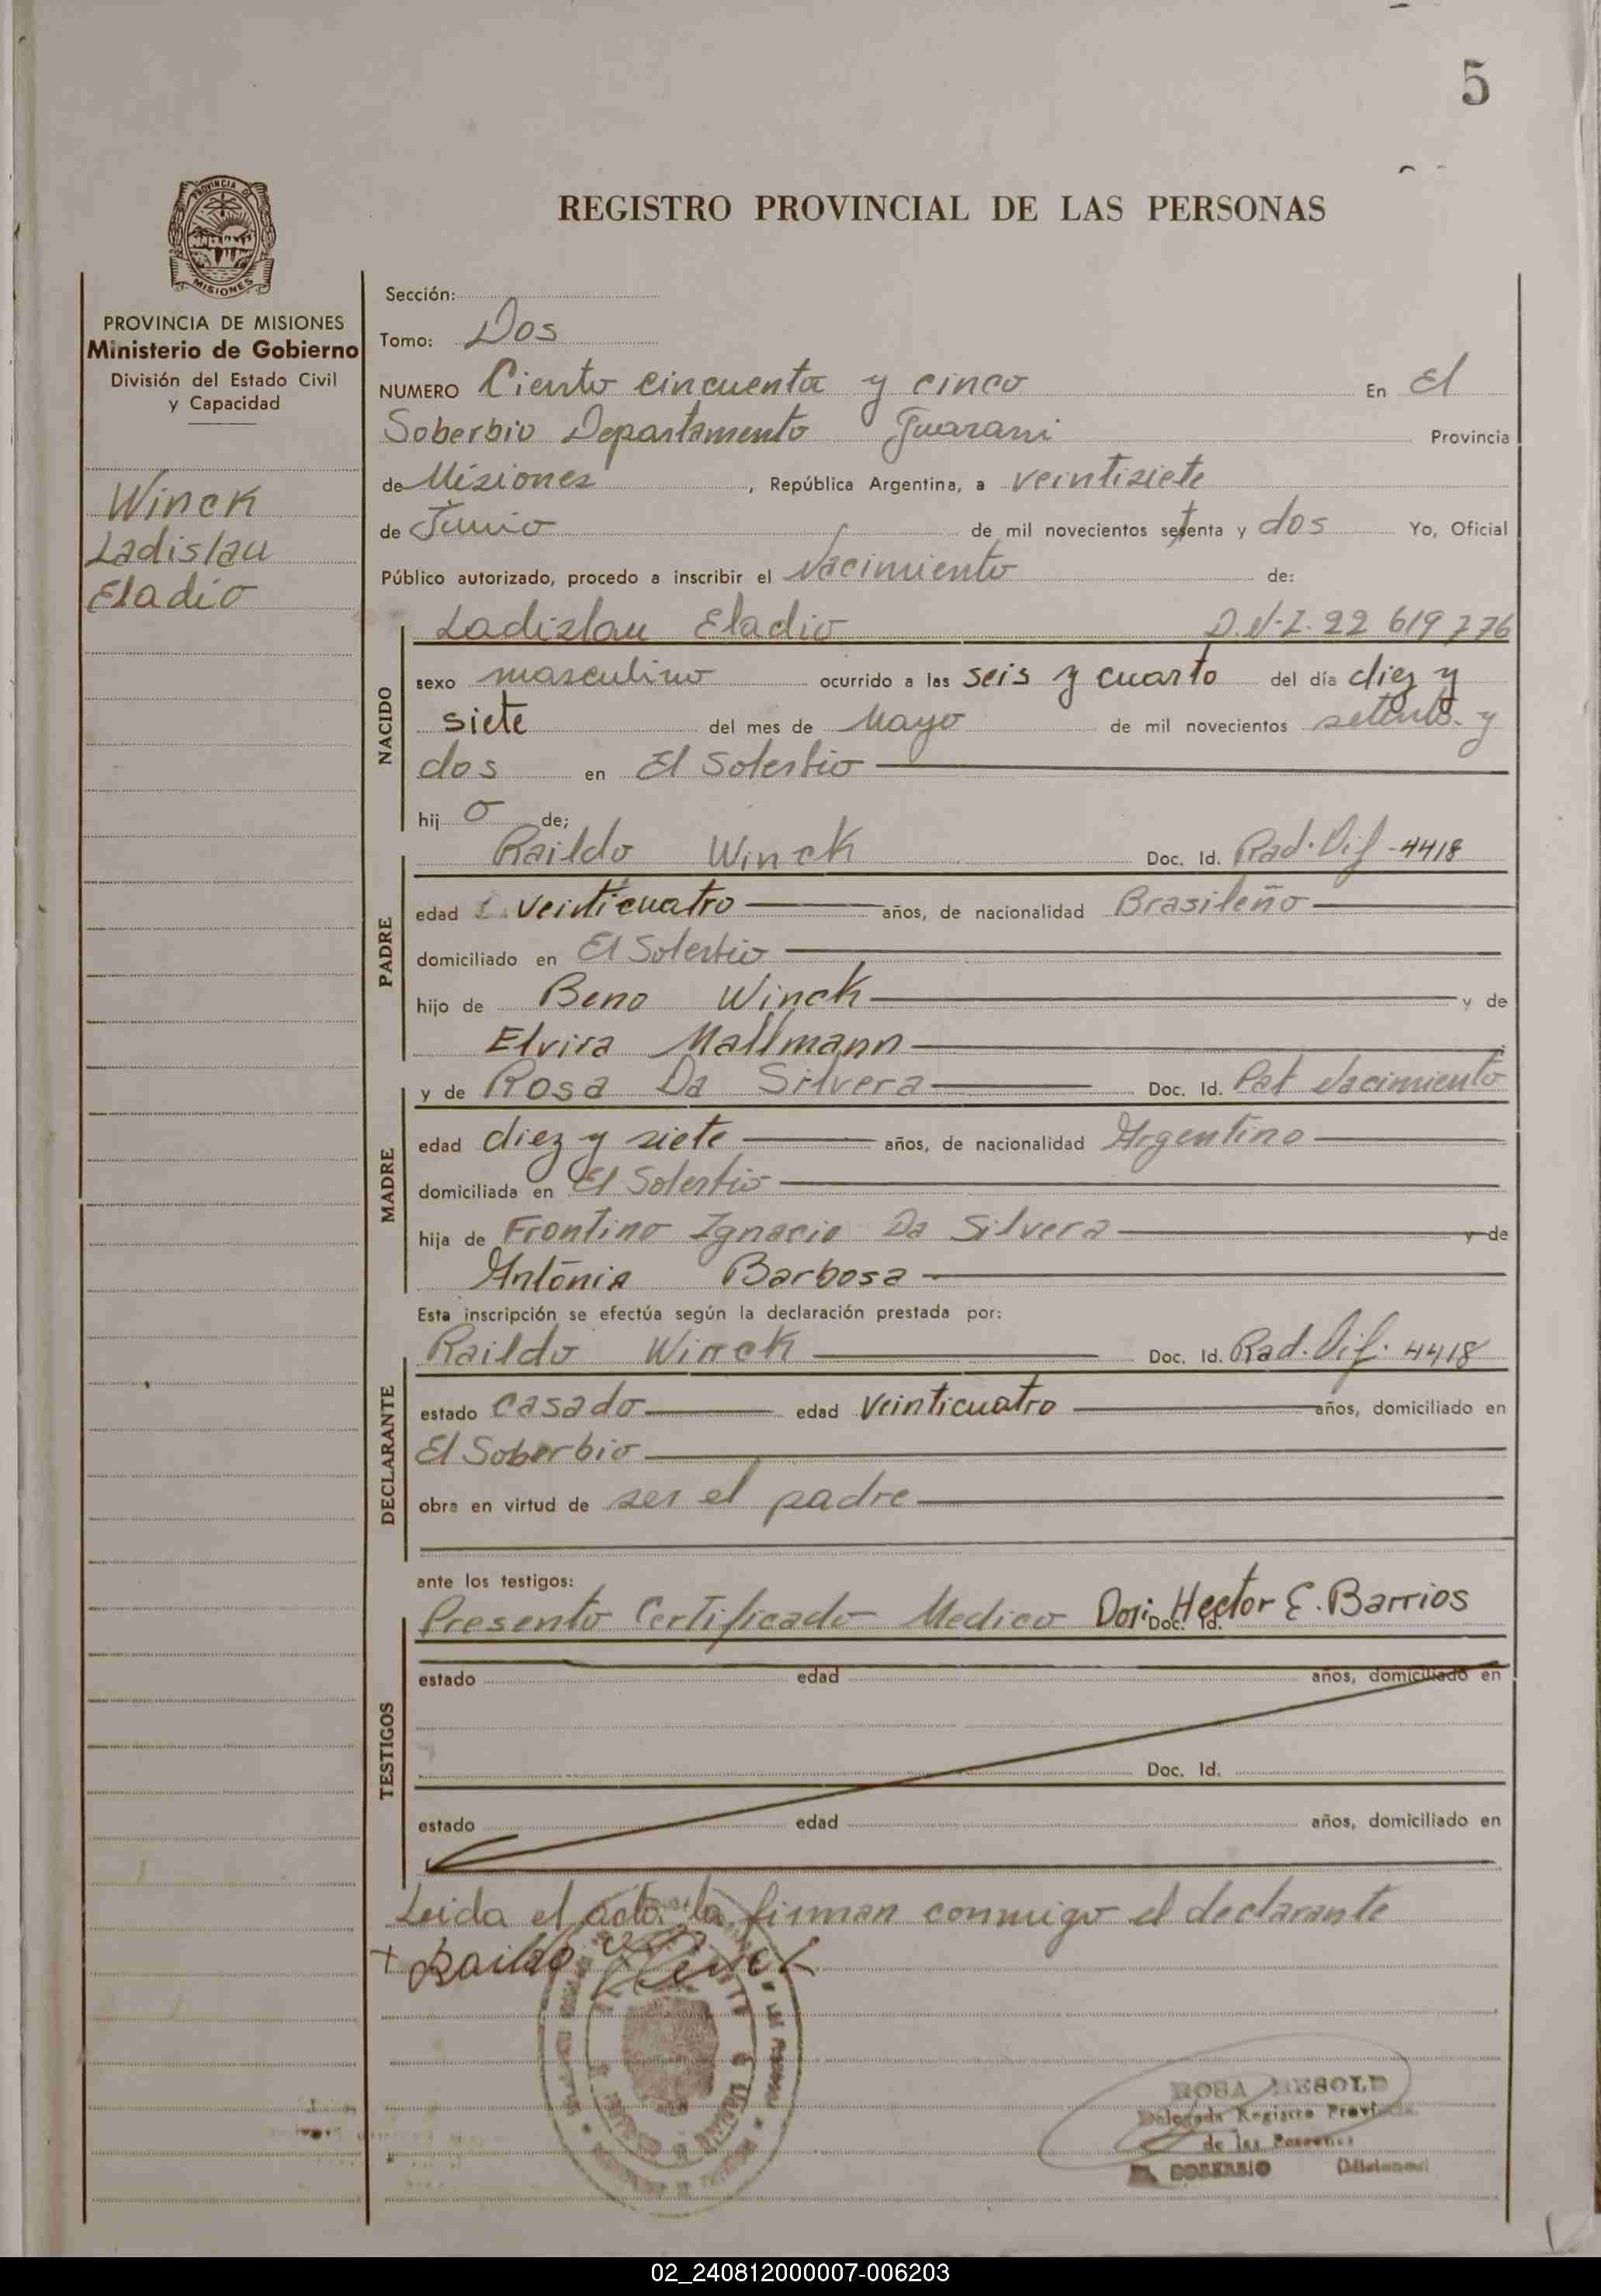 5
REGISTRO PROVINCIAL DE LAS PERSONAS
PROVINCIA DE MISIONES
Ministerio de Gobierno
División del Estado Civil
y Capacidad
Winck
Ladislau
Eladio
Sección:
Tomo: Dos
NUMERO Ciento cincuenta y cinco En El
Soberbio Departamento Guarani Provincia
de Misiones, República Argentina, a veintisiete
de Junio de mil novecientos setenta y dos Yo, Oficial
Público autorizado, procedo a inscribir el Nacimiento de:
Ladislau Eladio D.N.I. 22 619 776
NACIDO
sexo masculino ocurrido a las seis y cuarto del día diez y
siete del mes de Mayo de mil novecientos setenta y
dos en El Soberbio
hij o de;
Raildo Winck Doc. Id. Rad. Dif - 4418
PADRE
edad veinticuatro años, de nacionalidad Brasileño
domiciliado en El Soberbio
hijo de Beno Winck y de
Elvira Mallmann
y de Rosa Da Silvera Doc. Id. Pat Nacimiento
MADRE
edad diez y siete años, de nacionalidad Argentino
domiciliada en El Soberbio
hija de Frontino Ignacio Da Silvera y de
Antônia Barbosa
Esta inscripción se efectúa según la declaración prestada por:
Raildo Winck Doc. Id. Rad. Dif. 4418
DECLARANTE
estado casado edad veinticuatro años, domiciliado en
El Soberbio
obra en virtud de ser el padre
ante los testigos:
Presento Certificado Medico Doc. Id. Hector E. Barrios
TESTIGOS
estado edad años, domiciliado en
Doc. Id.
estado edad años, domiciliado en
Leida el acta, la firman conmigo el declarante
+ Raildo Winck
ROSA
Delegada Registro Provincial
de las Personas
EL SOBERBIO (Misiones)
02_240812000007-006203